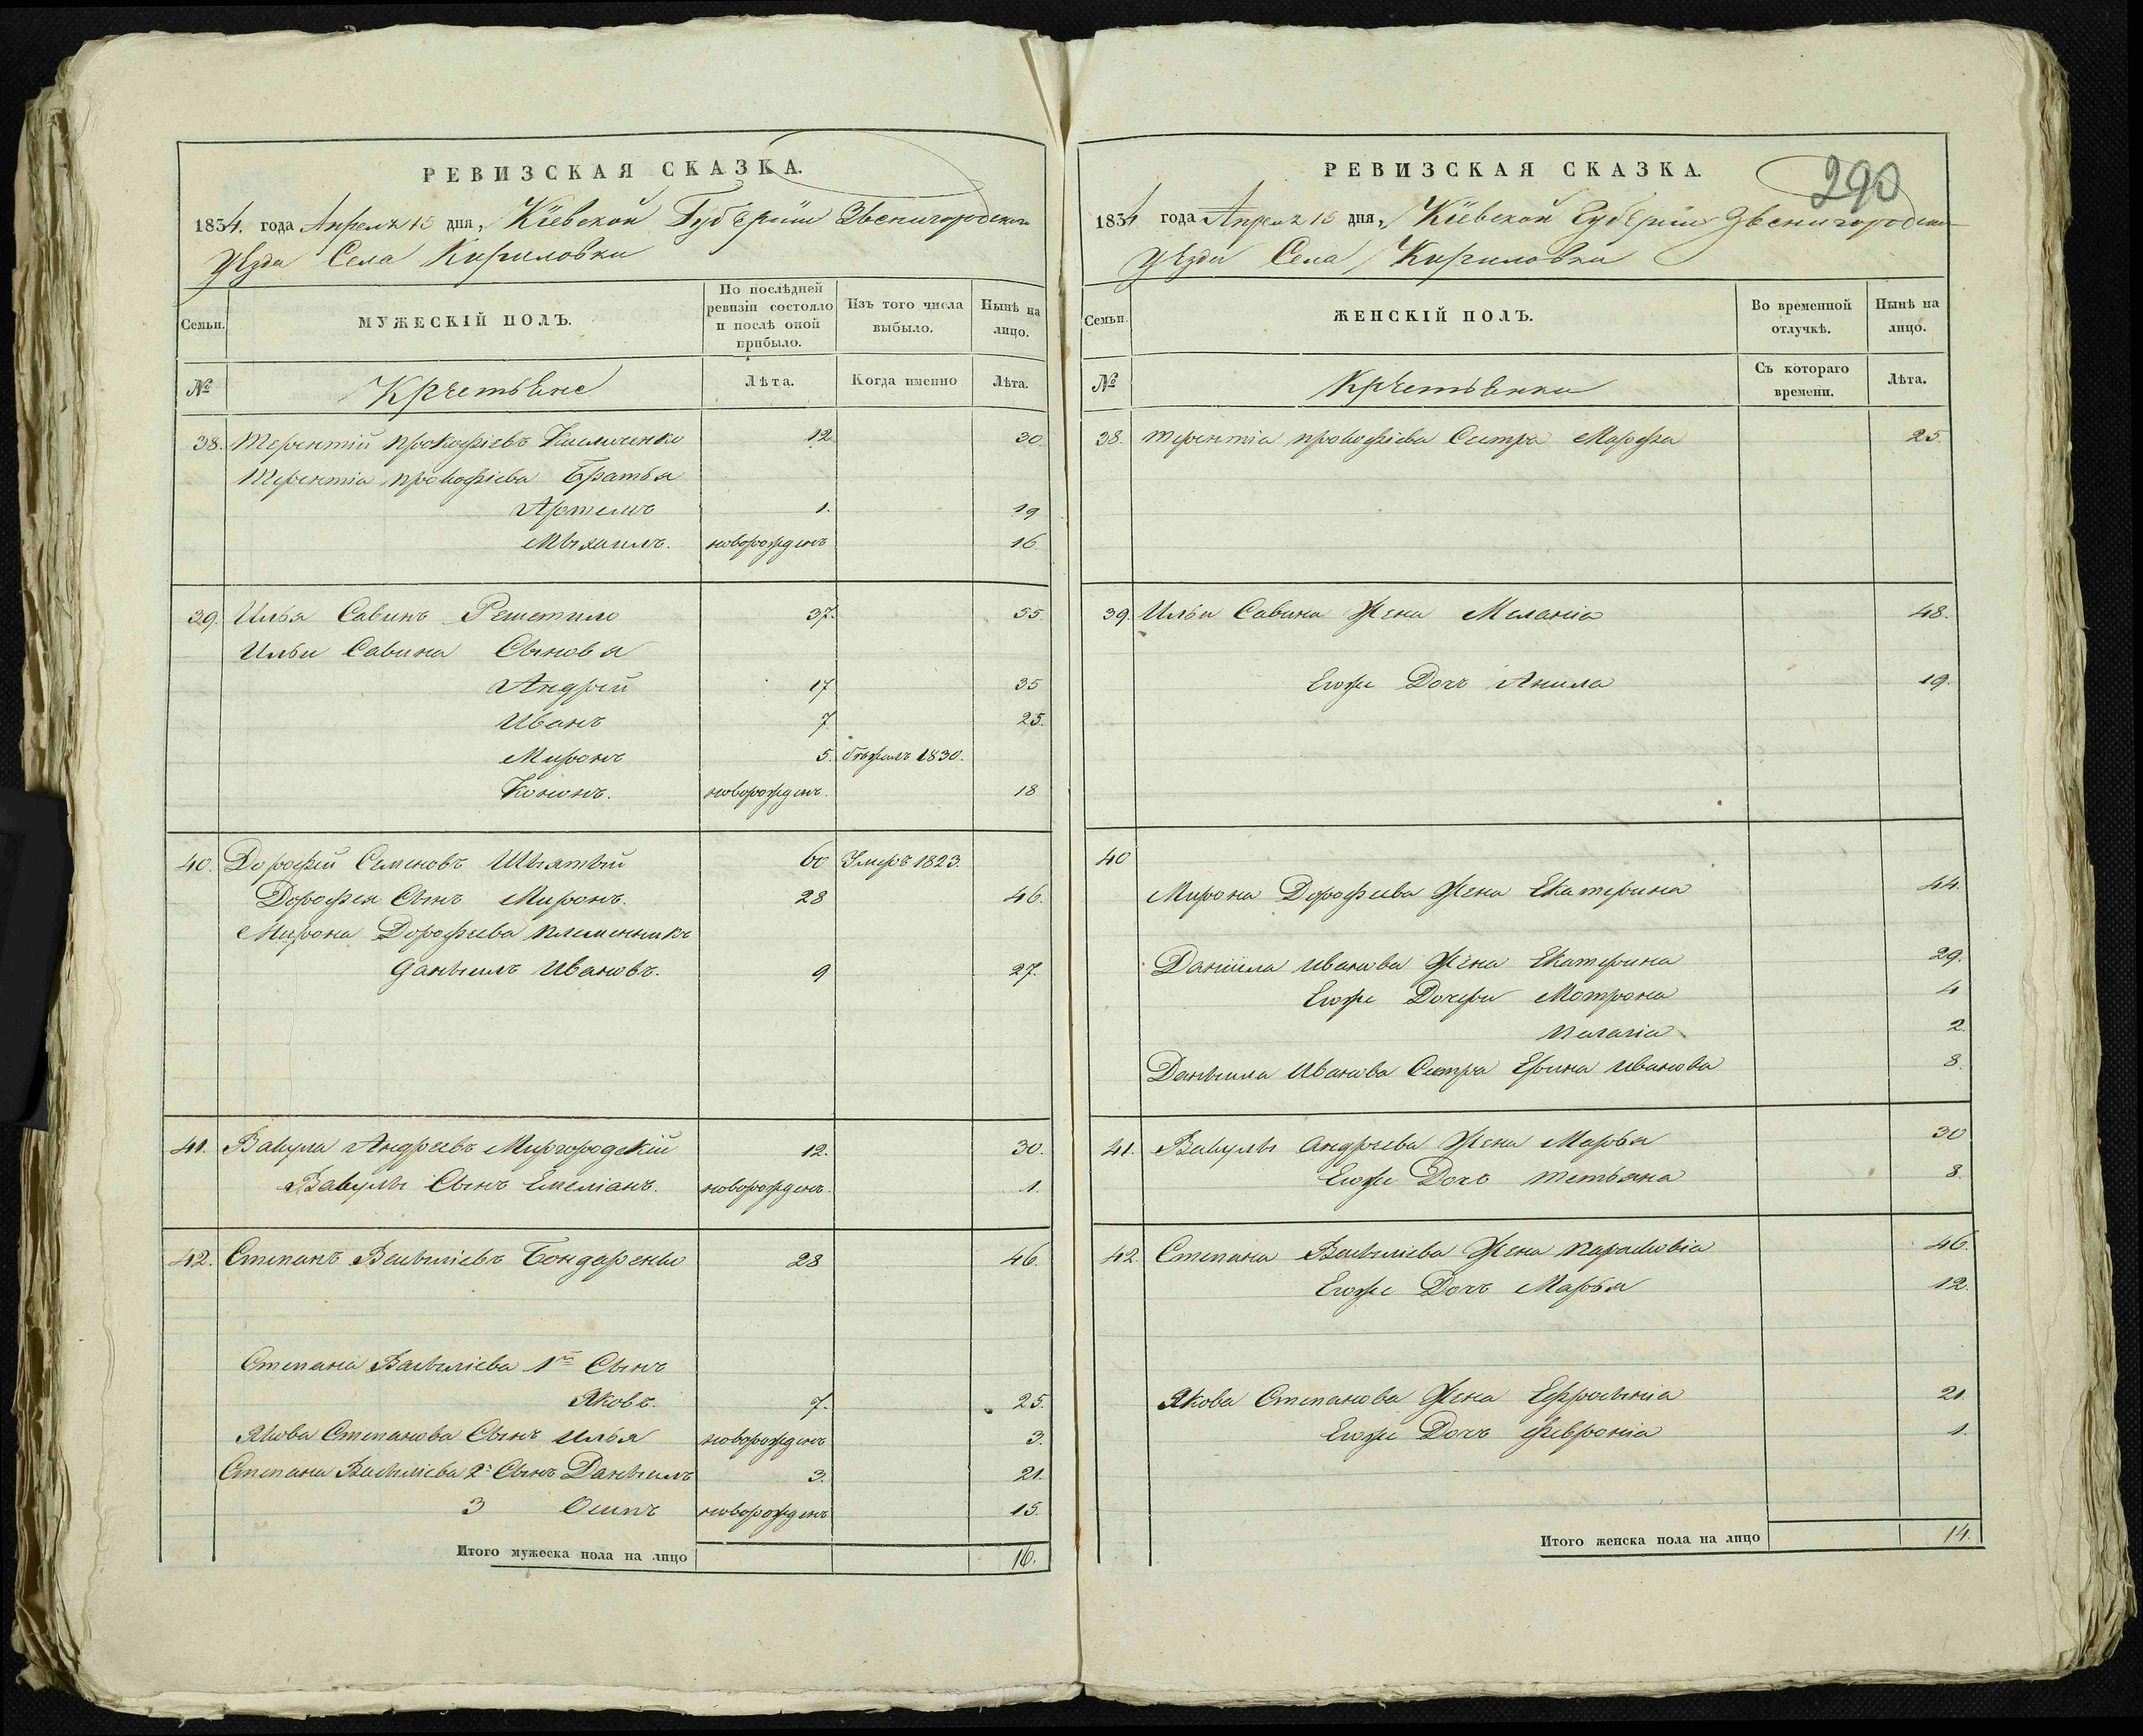 РЕВИЗСКАЯ СКАЗКА.
1834. года Апреля 15 дня, Кіевской Губѣрніи Звенигородского
уѣзда Села Кириловки
Семьи.
МУЖЕСКІЙ ПОЛЪ.
По послѣдней ревизіи состояло и послѣ оной прибыло.
Изъ того числа выбыло.
Нынѣ на лицо.
№
Крѣстьянѣ
Лѣта.
Когда именно
Лѣта.
38. Терентій Прокофіевъ 12. 30
Терентіа Прокофіева Братья
Артемъ 1. 19
Михаилъ. новорожденъ 16
39. Илья Савинъ Решетило 37. 55.
Ильи Савина Сыновья
Андрей 17 35
Иванъ 7. 25.
Миронъ 5. бѣжалъ 1830.
Кононъ. новорожденъ. 18
40. Дорофей Семеновъ 60 Умеръ 1823.
Дорофея Сынъ Миронъ. 28 46.
Мирона Дорофеева племенникъ
Даныилъ Ивановъ. 9 27.
41. Вакула Андреевъ Миргородскій 12. 30.
Вакулы Сынъ Емеліанъ. новорожденъ. 1.
42. Степанъ Васыліевъ Бондаренко 28 46.
Степана Васыліева 1й Сынъ
Яковъ. 7. 25.
Якова Степанова Сынъ Илья новорожденъ 3.
Степана Васыліева 2й Сынъ Даныилъ 3. 21.
3 Осипъ новорожденъ 15.
Итого мужеска пола на лицо 16.
РЕВИЗСКАЯ СКАЗКА.
290
1834 года Апреля 15 дня, Кіевской Губѣрніи Звенигородского
уѣзда Села Кириловки
Семьи.
ЖЕНСКІЙ ПОЛЪ.
Во временной отлучкѣ.
Нынѣ на лицо.
№
Крѣстьянки
Съ котораго времени.
Лѣта.
38. Терентіа Прокофіева Сестра Марфа 25.
39. Ильи Савина Жена Меланіа 48.
Егоже Дочъ Акила 19.
40
Мирона Дорофеева Жена Екатерина 44.
Даніила Иванова Жена Екатерина 29.
Егоже Дочери Мотрона 4
Палагіа 2.
Даныила Иванова Сестра Ерина Иванова 8.
41. Вакулы Андреева Жена Марья 30
Егоже Дочъ Тетьяна 8.
42. Степана Васыліева Жена Парасковіа 46.
Егоже Дочъ Марья 12.
Якова Степанова Жена Ефросыніа 21.
Егоже Дочъ Февроніа 1.
Итого женска пола на лицо 14.